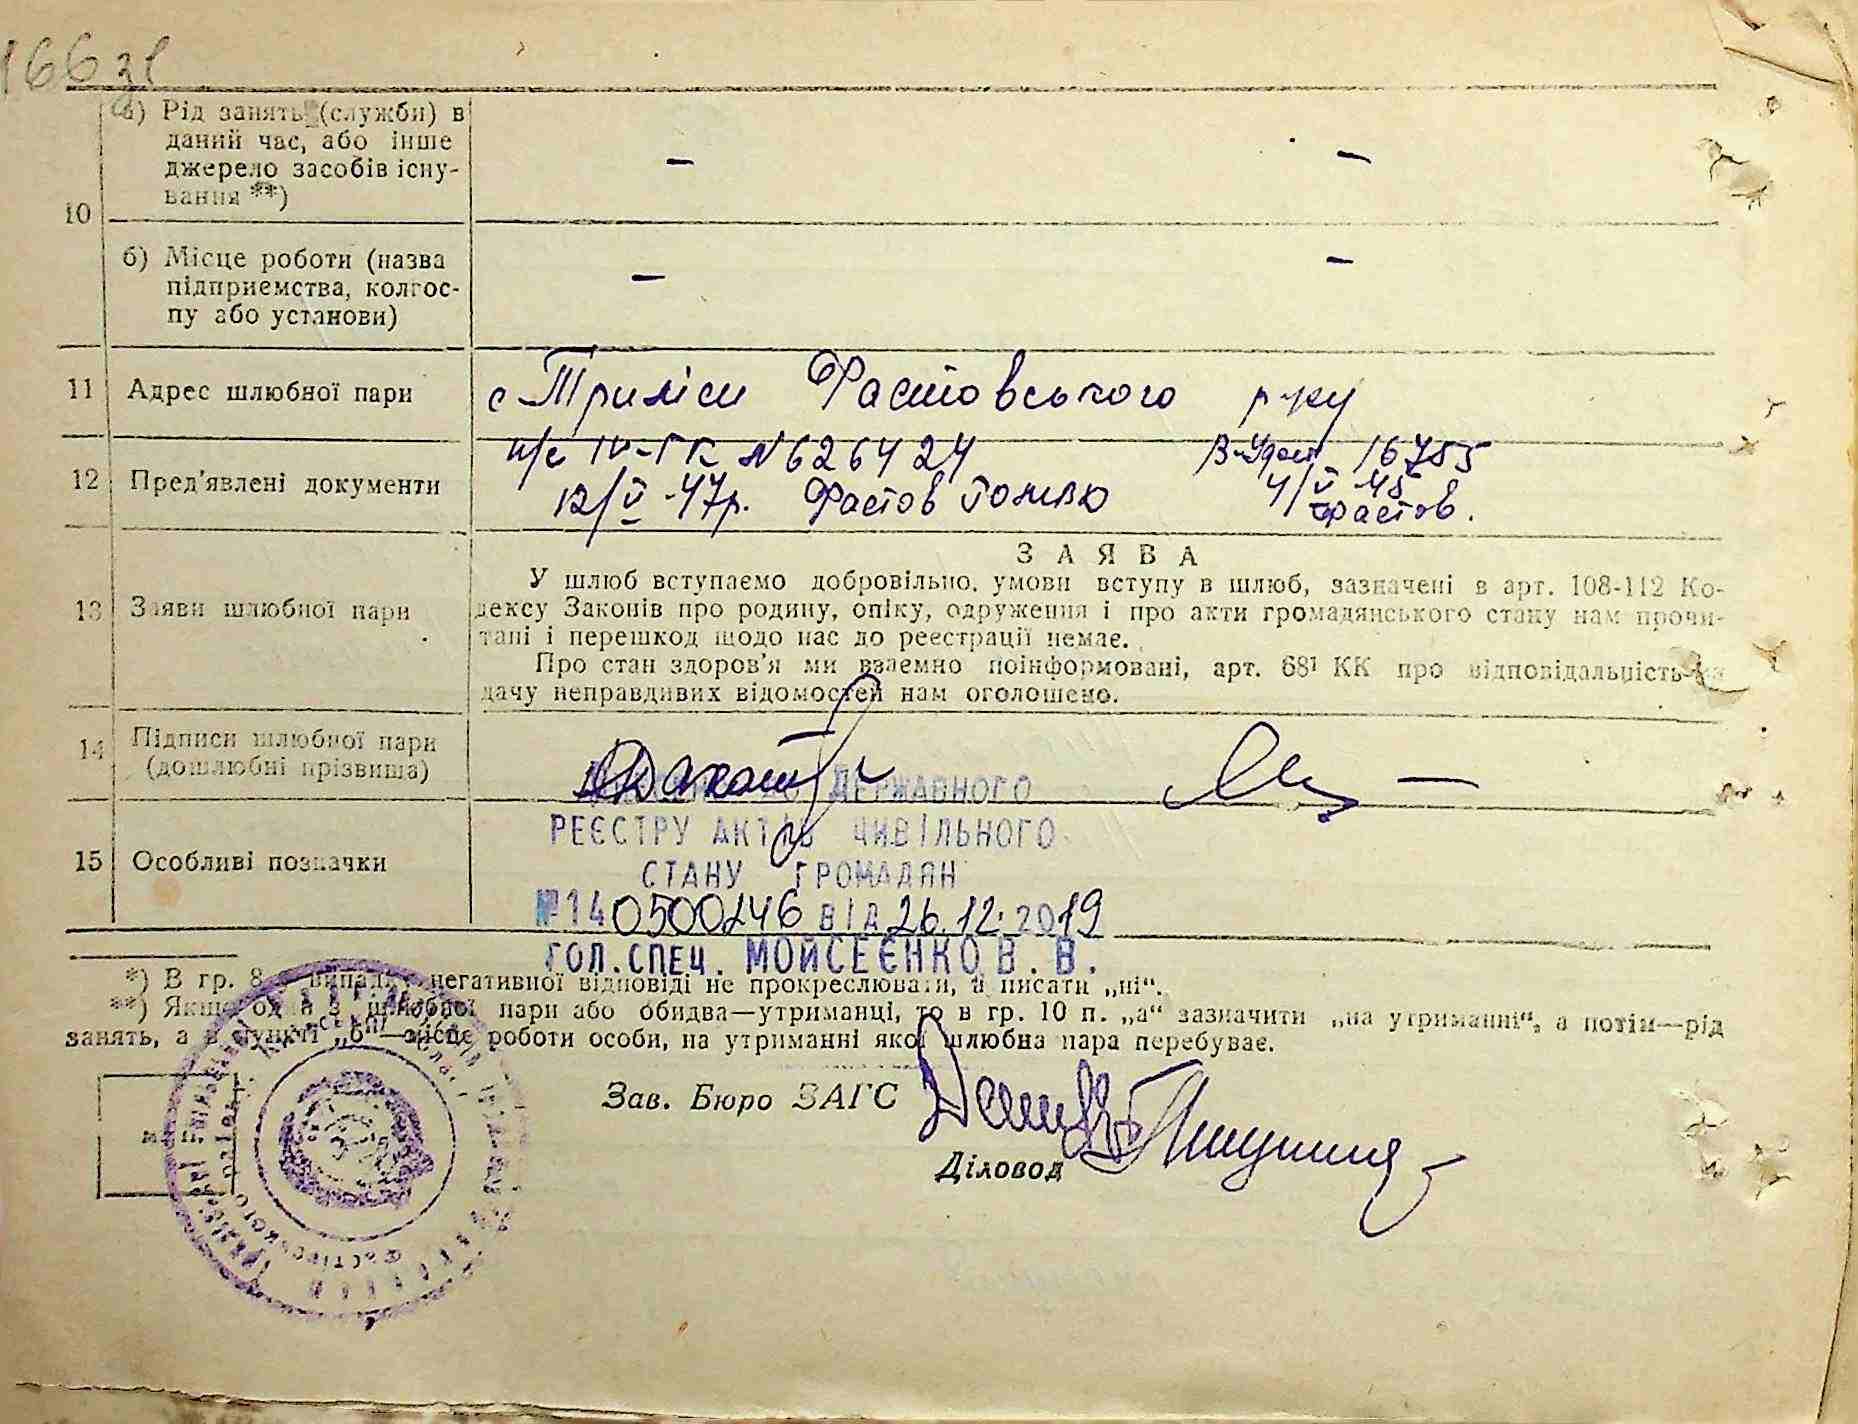 166 зв
10
а) Рід занять (служби) в
даний час, або інше
джерело засобів існу-
вання **)
–
–
б) Місце роботи (назва
підприємства, колгос-
пу або установи)
–
–
11 Адрес шлюбної пари
с Триліси Фастовського р-ну
12 Пред'явлені документи
п/с IV-ГК N 626424
12/V-47р. Фастов
16755
4/V 45
Фастов.
13 Заяви шлюбної пари
ЗАЯВА
У шлюб вступаємо добровільно, умови вступу в шлюб, зазначені в арт. 108-112 Ко-
дексу Законів про родину, опіку, одруження і про акти громадянського стану нам прочи-
тані і перешкод щодо нас до реєстрації немає.
Про стан здоров'я ми взаємно поінформовані, арт. 68¹ КК про відповідальність за
дачу неправдивих відомостей нам оголошено.
14 Підписи шлюбної пари
(дошлюбні прізвища)
ДЕРЖАВНОГО
РЕЄСТРУ АКТІВ ЦИВІЛЬНОГО
СТАНУ ГРОМАДЯН
№140500246 ВІД 26.12.2019
ГОЛ.СПЕЦ. МОЙСЕЄНКО В. В.
15 Особливі позначки
*) В гр. 8 випадку негативної відповіді не прокреслювати, а писати „ні“.
**) Якщо один з шлюбної пари або обидва—утриманці, то в гр. 10 п. „а“ зазначити „на утриманні“, а потім—рід
занять, а в пункті „б“—місце роботи особи, на утриманні якої шлюбна пара перебуває.
Зав. Бюро ЗАГС
Діловод
м. п.